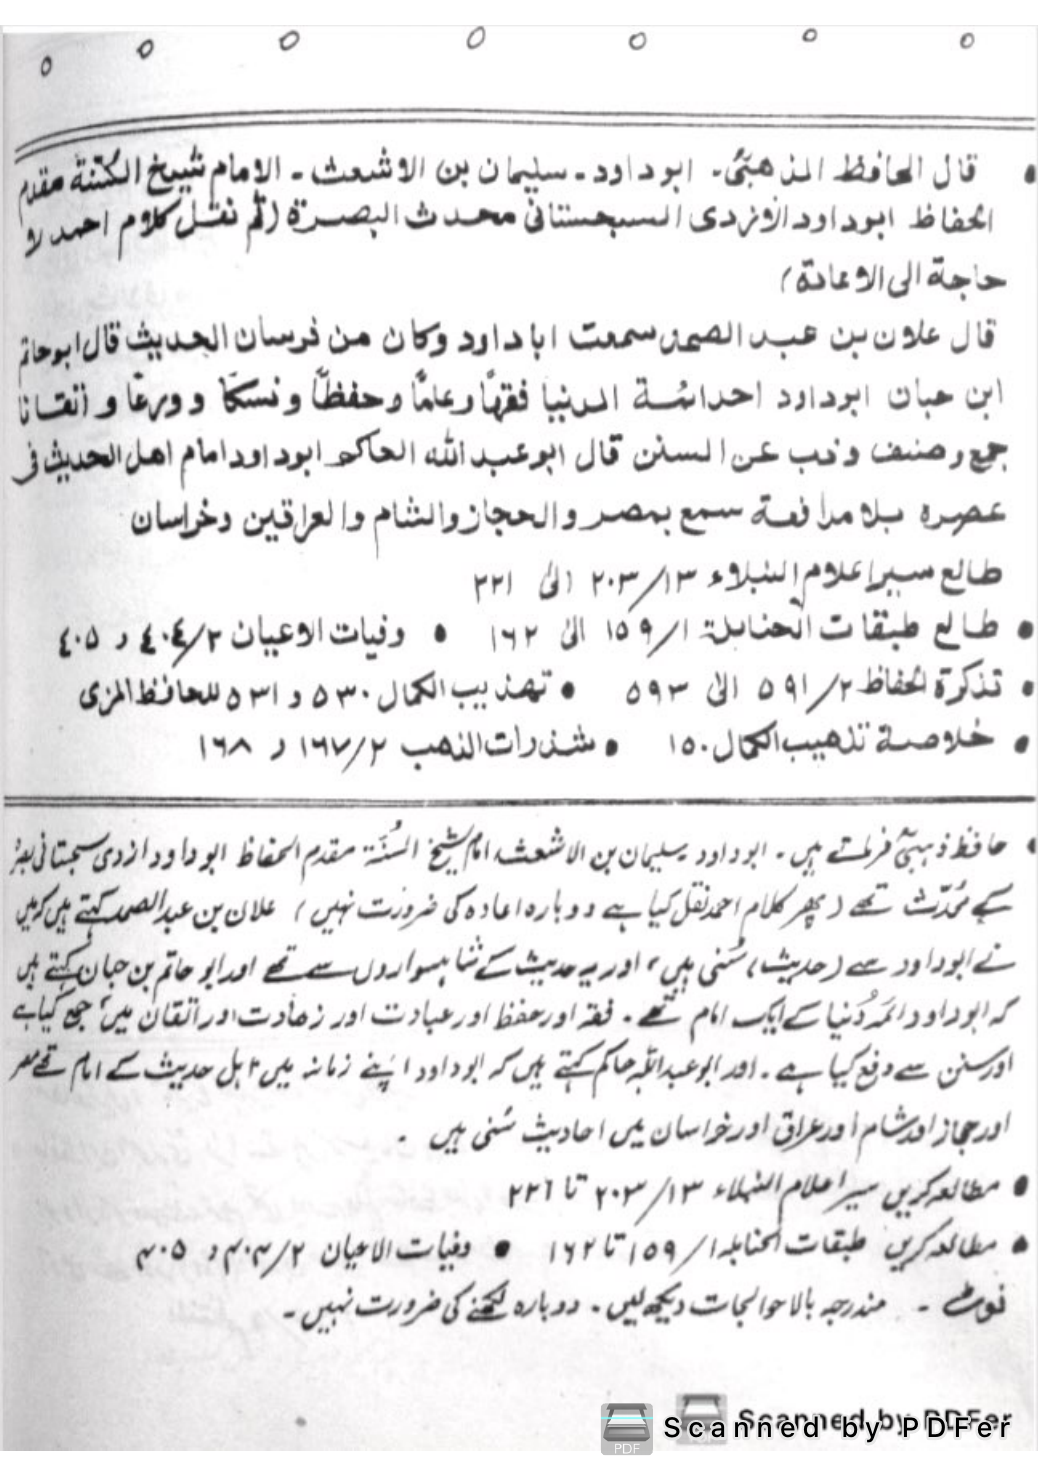 • قال الحافظ الذهبیؒ۔ ابوداود۔ سلیمان بن الاشعث۔ الامام شیخ السُّنة مقدم
الحفاظ ابوداود الازدی السجستانی محدث البصرة (ثم نقل کلام احمد لا
حاجة الی الاعادة)
قال علان بن عبد الصمد سمعت ابا داود وکان من فرسان الحدیث قال ابوحاتم
ابن حبان ابوداود احد ائمة الدنیا فقهًا وعلمًا وحفظًا ونسکًا وورعًا واتقانا
جمع وصنف وذب عن السنن قال ابوعبد الله الحاکم ابوداود امام اهل الحدیث فی
عصره بلا مدافعة سمع بمصر والحجاز والشام والعراقین وخراسان
طالع سیر اعلام النبلاء ۱۳/ ۲۰۳ الیٰ ۲۲۱
• طالع طبقات الحنابلة ۱/ ۱۵۹ الیٰ ۱۶۲ • وفیات الاعیان ۲/ ٤٠٤ و ٤٠٥
• تذکرة الحفاظ ۲/ ۵۹۱ الیٰ ۵۹۳ • تهذیب الکمال ۵۳۰ و ۵۳۱ للحافظ المزی
• خلاصة تذهیب الکمال ۱۵۰ • شذرات الذهب ۲/ ۱۶۷ و ۱۶۸
• حافظ ذہبیؒ فرماتے ہیں۔ ابوداود سلیمان بن الاشعث امام شیخ السُّنَّة مقدم الحفاظ ابوداود ازدی سجستانی بصرہ
کے محدّث تھے (پھر کلام احمد نقل کیا ہے دوبارہ اعادہ کی ضرورت نہیں) علان بن عبدالصمد کہتے ہیں کہ میں
نے ابوداود سے (حدیث) سُنی ہیں، اور یہ حدیث کے شاہسواروں سے تھے اور ابو حاتم بن حبان کہتے ہیں
کہ ابوداود ائمہ دُنیا کے ایک امام تھے۔ فقہ اور حفظ اور عبادت اور زھادت اور اتقان میں، جمع کیا ہے
اور سنن سے دفع کیا ہے۔ اور ابو عبداللہ حاکم کہتے ہیں کہ ابوداود اپنے زمانہ میں اہل حدیث کے امام تھے مصر
اور حجاز اور شام اور عراق اور خراسان میں احادیث سُنی ہیں ۔
• مطالعہ کریں سیر اعلام النبلاء ۱۳/ ۲۰۳ تا ۲۲۱
• مطالعہ کریں طبقات الحنابلہ ۱/ ۱۵۹ تا ۱۶۲ • وفیات الاعیان ۲/ ۴۰۴ و ۴۰۵
نوٹ ۔ مندرجہ بالا حوالجات دیکھ لیں۔ دوبارہ لکھنے کی ضرورت نہیں۔
Scanned by PDFer
Scanned by PDFer
PDF